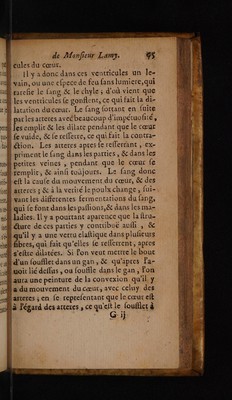 de Monsieur Lamy. 95
cules du cœur.
Il y a donc dans ces ventricules un le-
vain, ou une espece de feu sans lumiere, qui
rarefie le sang & le chyle; d'où vient que
les ventricules se gonflent, ce qui fait la di-
latation du cœur. Le sang sortant en suite
par les arteres avec beaucoup d'impetuosité,
les emplit & les dilate pendant que le cœur
se vuide, & se resserre, ce qui fait la contra-
ction. Les arteres aprés se resserrant, ex-
priment le sang dans les parties, & dans les
petites veines, pendant que le cœur se
remplit, & ainsi toûjours. Le sang donc
est la cause du mouvement du cœur, & des
arteres; & à la verité le poulx change, sui-
vant les differentes fermentations du sang,
qui se font dans les passions, & dans les ma-
ladies. Il y a pourtant apparence que la stru-
cture de ces parties y contribuë aussi, &
qu'il y a une vertu elastique dans plusieurs
fibres, qui fait qu'elles se resserrent, aprés
s'estre dilatées. Si l'on veut mettre le bout
d'un soufflet dans un gan, & qu'aprés l'a-
voir lié dessus, on souffle dans le gan, l'on
aura une peinture de la convexion qu'il y
a du mouvement du cœur, avec celuy des
arteres; en se representant que le cœur est
à l'égard des arteres, ce qu'est le soufflet à
G ij